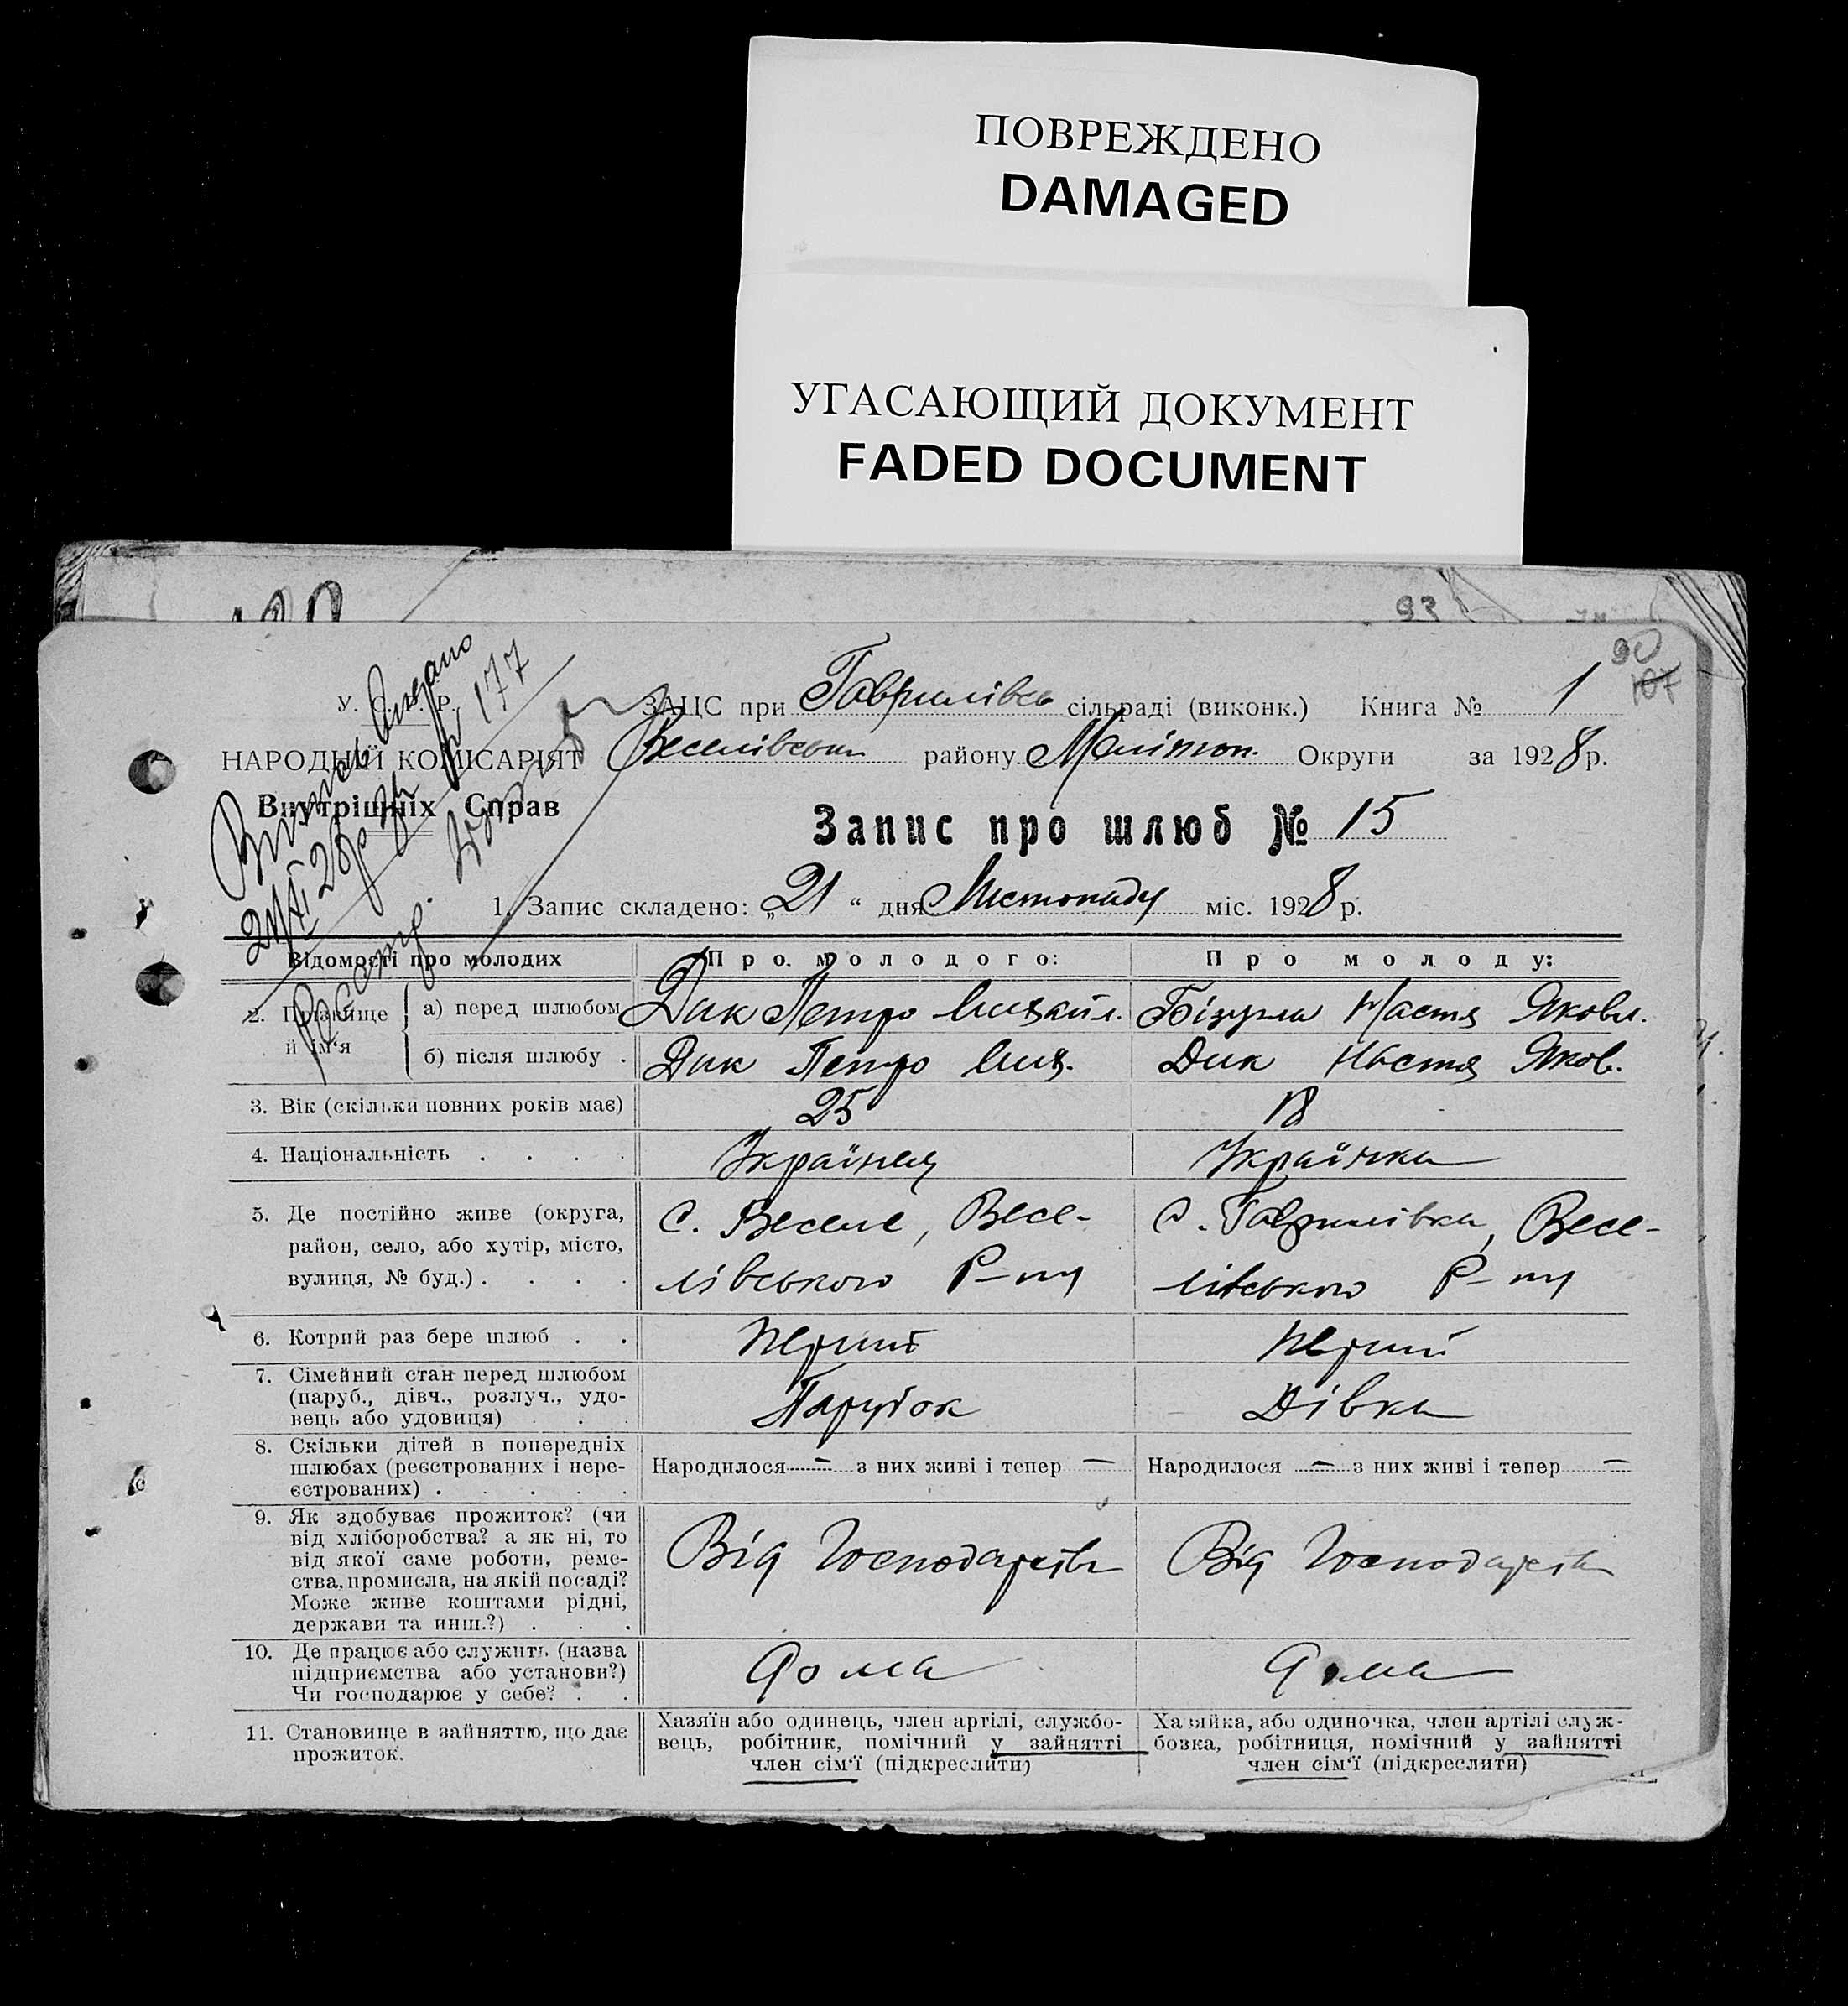 ПОВРЕЖДЕНО
DAMAGED
УГАСАЮЩИЙ ДОКУМЕНТ
FADED DOCUMENT
93
90
107
У. С. Р. Р.
ЗАЦС при Гаврилівсь сільраді (виконк.) Книга № 1
НАРОДНІЙ КОМІСАРІЯТ Веселівськ району Мелітоп. Округи за 1928 р.
Внутрішніх Справ
Запис про шлюб № 15
Видано
21/XI 28р № 177
1. Запис складено: „21“ дня Листопаду міс. 1928 р.
Відомості про молодих Про молодого: Про молоду:
2. Прізвище й ім'я а) перед шлюбом Дик Петро Михайл. Настя Яковл.
б) після шлюбу . Дик Петро Мих. Дик Настя Яков.
3. Вік (скільки повних років має) 25 18
4. Національність . . . . Українец Українка
5. Де постійно живе (округа, С. Веселе, Весе- С. Гаврилівка, Весе-
район, село, або хутір, місто,
вулиця, № буд.) . . . . лівського Р-ну лівського Р-ну
6. Котрий раз бере шлюб . . Перший Перший
7. Сімейний стан перед шлюбом
(паруб., дівч., розлуч., удо- Парубок Дівка
вець або удовиця) . . .
8. Скільки дітей в попередніх
шлюбах (реєстрованих і нере- Народилося — з них живі і тепер — Народилося — з них живі і тепер —
єстрованих) . . . . .
9. Як здобуває прожиток? (чи
від хліборобства? а як ні, то
від якої саме роботи, реме- Від Господарства Від Господарства
ства, промисла, на якій посаді?
Може живе коштами рідні,
держави та инш.?) . . .
10. Де працює або служить (назва
підприємства або установи?) дома дома
Чи господарює у себе? . .
11. Становище в зайняттю, що дає Хазяїн або одинець, член артілі, службо- Хазяйка, або одиночка, член артілі служ-
прожиток. вець, робітник, помічний у зайнятті бовка, робітниця, помічний у зайнятті
член сім'ї (підкреслити) член сім'ї (підкреслити)